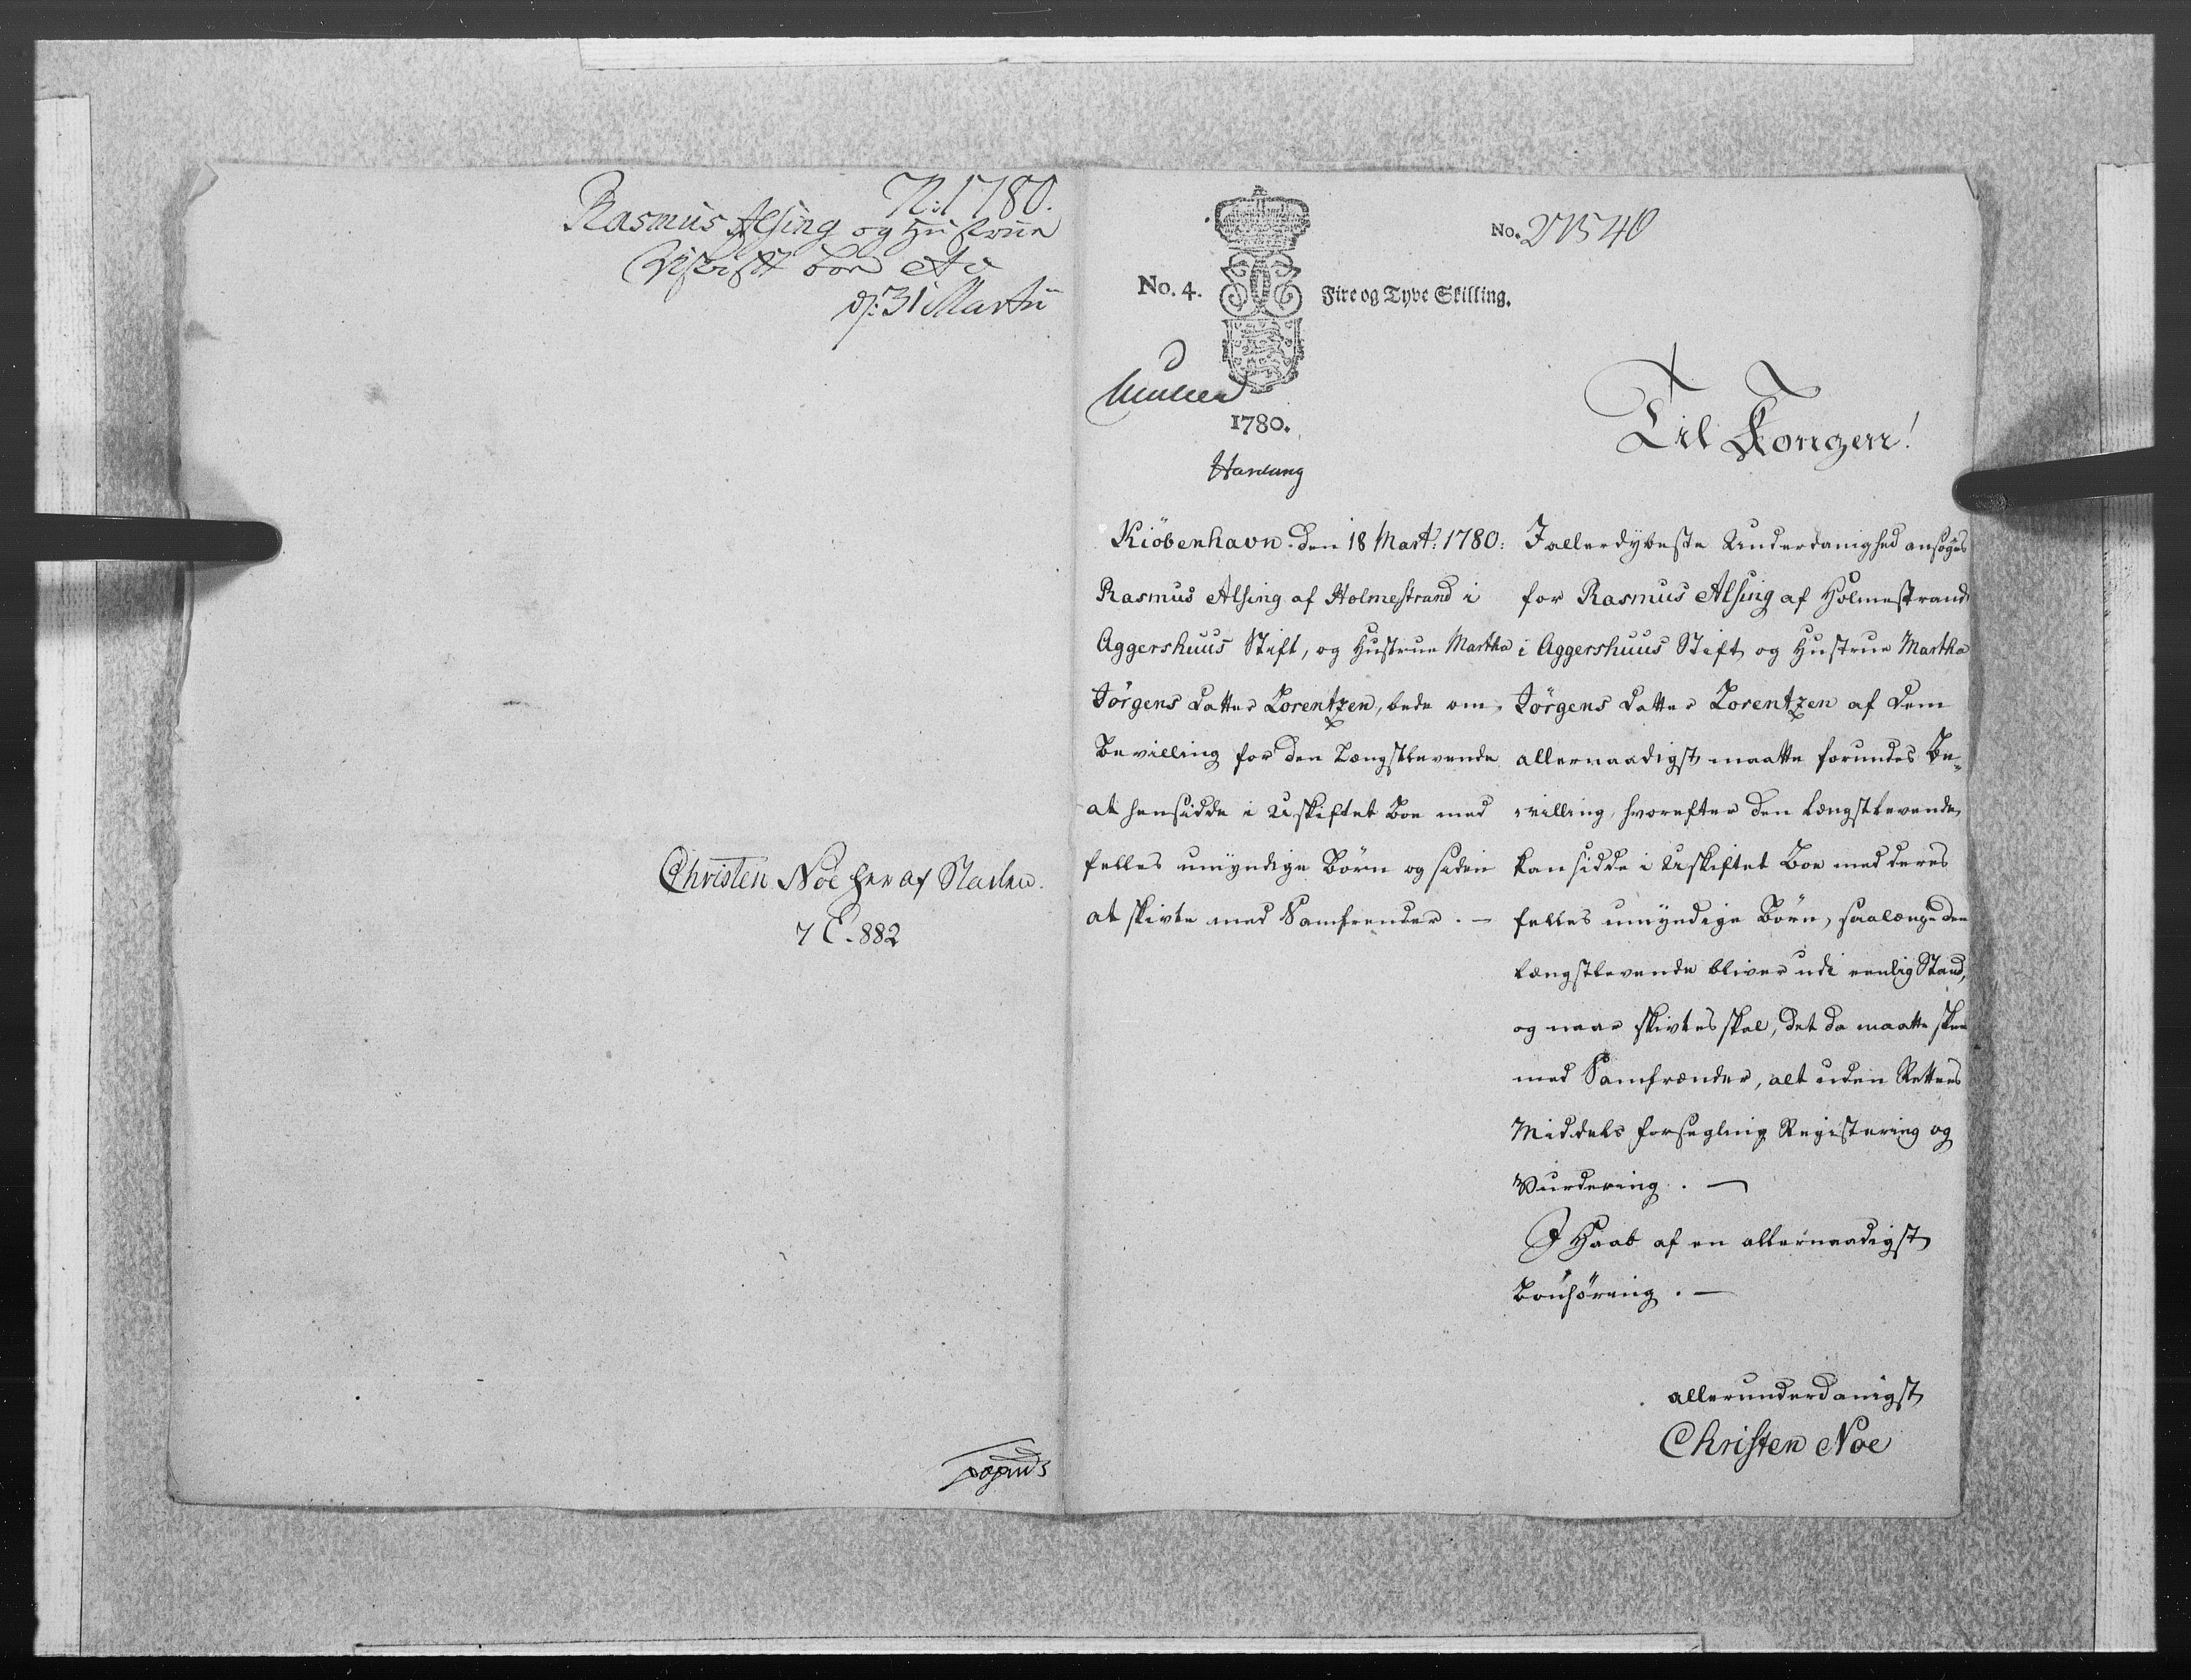 N: 1780.
Rasmus Alsing og Hustrue
Uskift boe
d: 31 Martii
Christen Noe her af Staden.
7 C. 882
No. 4.
Fire og Tyve Skilling.
No. 21540
1780.
Til Kongen!
Kiöbenhavn den 18 Mart: 1780:
Rasmus Alsing af Holmestrand i
Aggershuus Stift, og Hustrue Martha
Jörgens datter Lorentzen, bede om
Bevilling for den Længstlevende
at hensidde i Uskiftet Boe med
felles umyndige Börn og siden
at skivte med Samfrender. –
I allerdybeste Underdanighed ansøges
for Rasmus Alsing af Holmestrand
i Aggershuus Stift og Hustrue Martha
Jörgens datter Lorentzen af dem
allernaadigst maatte forundes Be-
villing, hvorefter den længstlevende
kan sidde i Uskiftet Boe med deres
felles umyndige Börn, saalænge den
længstlevende bliver udi eenlig Stand,
og naar skivtes skal, det da maatte skee
med Samfrænder, alt uden Rettens
Middels Forsegling Registering og
Vurdering. –
I Haab af en allernaadigst
Bönhöring. –
allerunderdanigst
Christen Noe